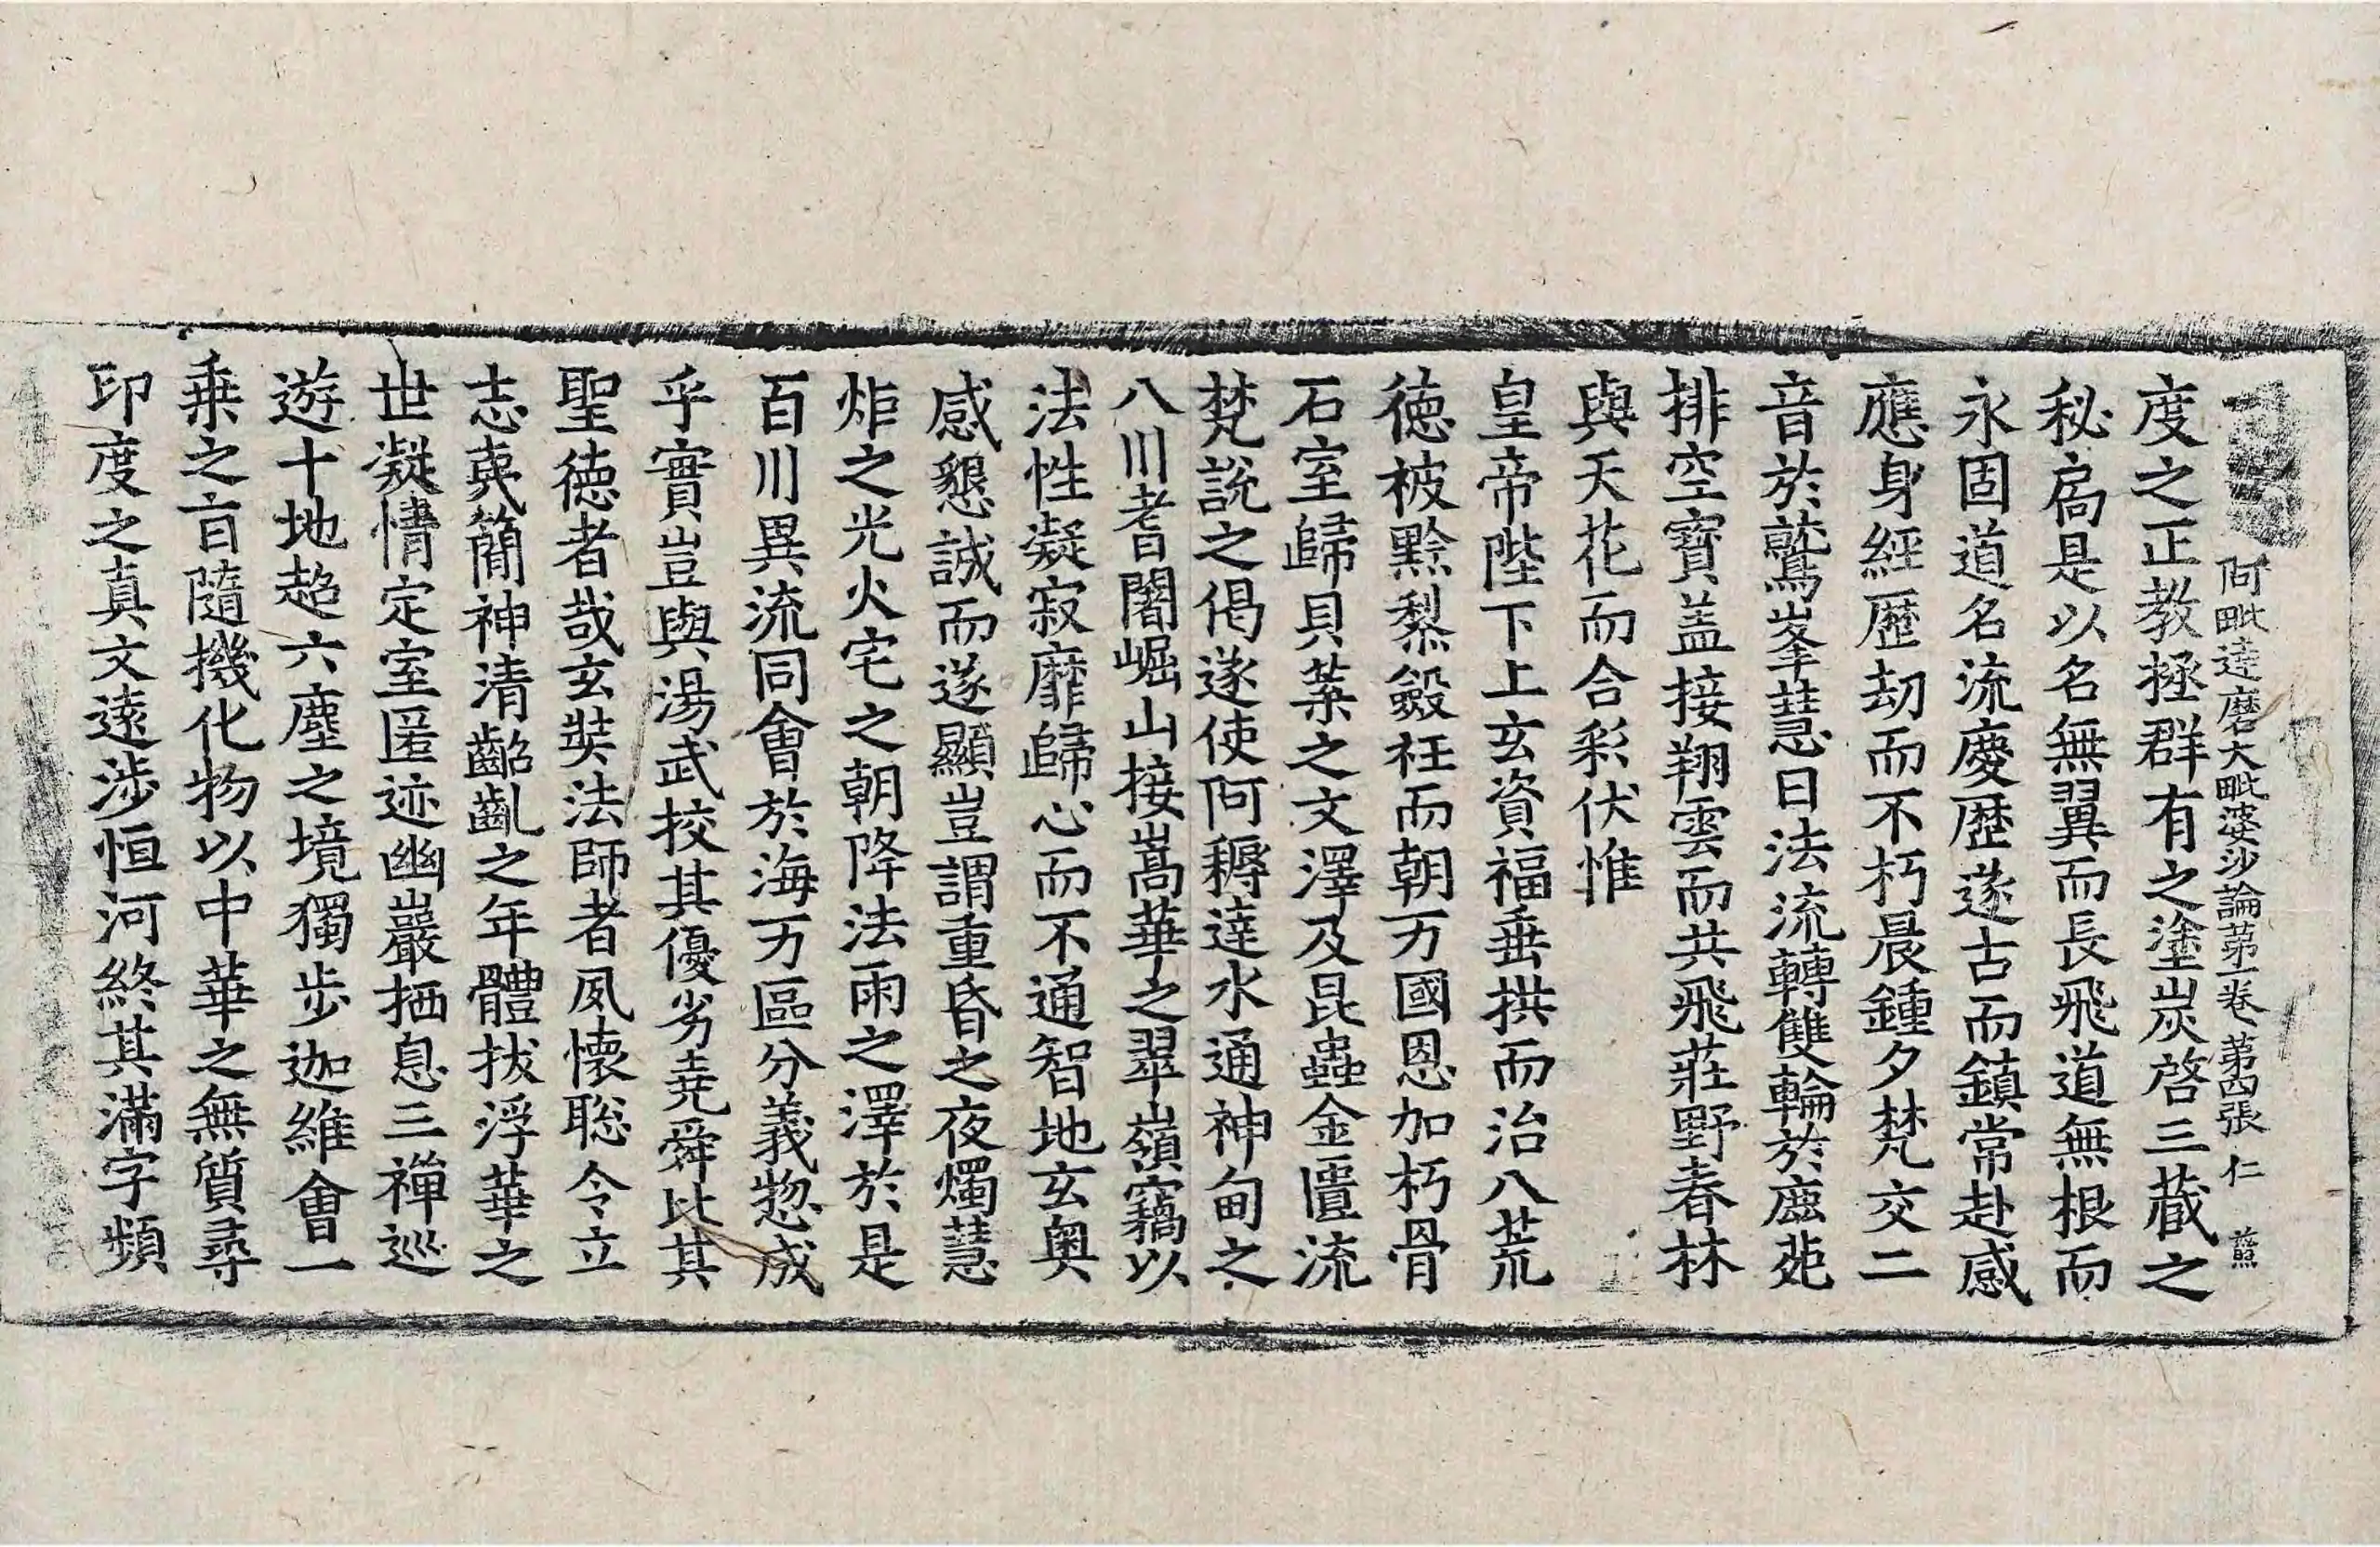 阿毗達磨大毗婆沙論第一卷 第四張 仁
度之正教拯群有之塗炭啓三蔵之
秘扃是以名無翼而長飛道無根而
永固道名流慶歷遂古而鎮常赴感
應身經歷劫而不朽晨鍾夕梵交二
音於鷲峯慧日法流轉雙輪於鹿菀
排空寶盖接翔雲而共飛莊野春林
與天花而合彩伏惟
皇帝陛下上玄資福垂拱而治八荒
德被黔黎斂衽而朝万國恩加朽骨
石室歸貝葉之文澤及昆蟲金匱流
梵說之偈遂使阿耨達水通神甸之
八川耆闍崛山接嵩華之翠嶺竊以
法性凝寂靡歸心而不通智地玄奧
感懇誠而遂顯豈謂重昏之夜燭慧
炬之光火宅之朝降法雨之澤於是
百川異流同會於海万區分義惣成
乎實豈與湯武挍其優劣堯舜比其
聖德者哉玄奘法師者夙懷聡令立
志夷簡神清齠齓之年體拔浮華之
世凝情定室匿迹幽巖栖息三禪巡
遊十地超六塵之境獨步迦維會一
乗之旨隨機化物以中華之無質尋
印度之真文遠涉恒河終其滿字頻